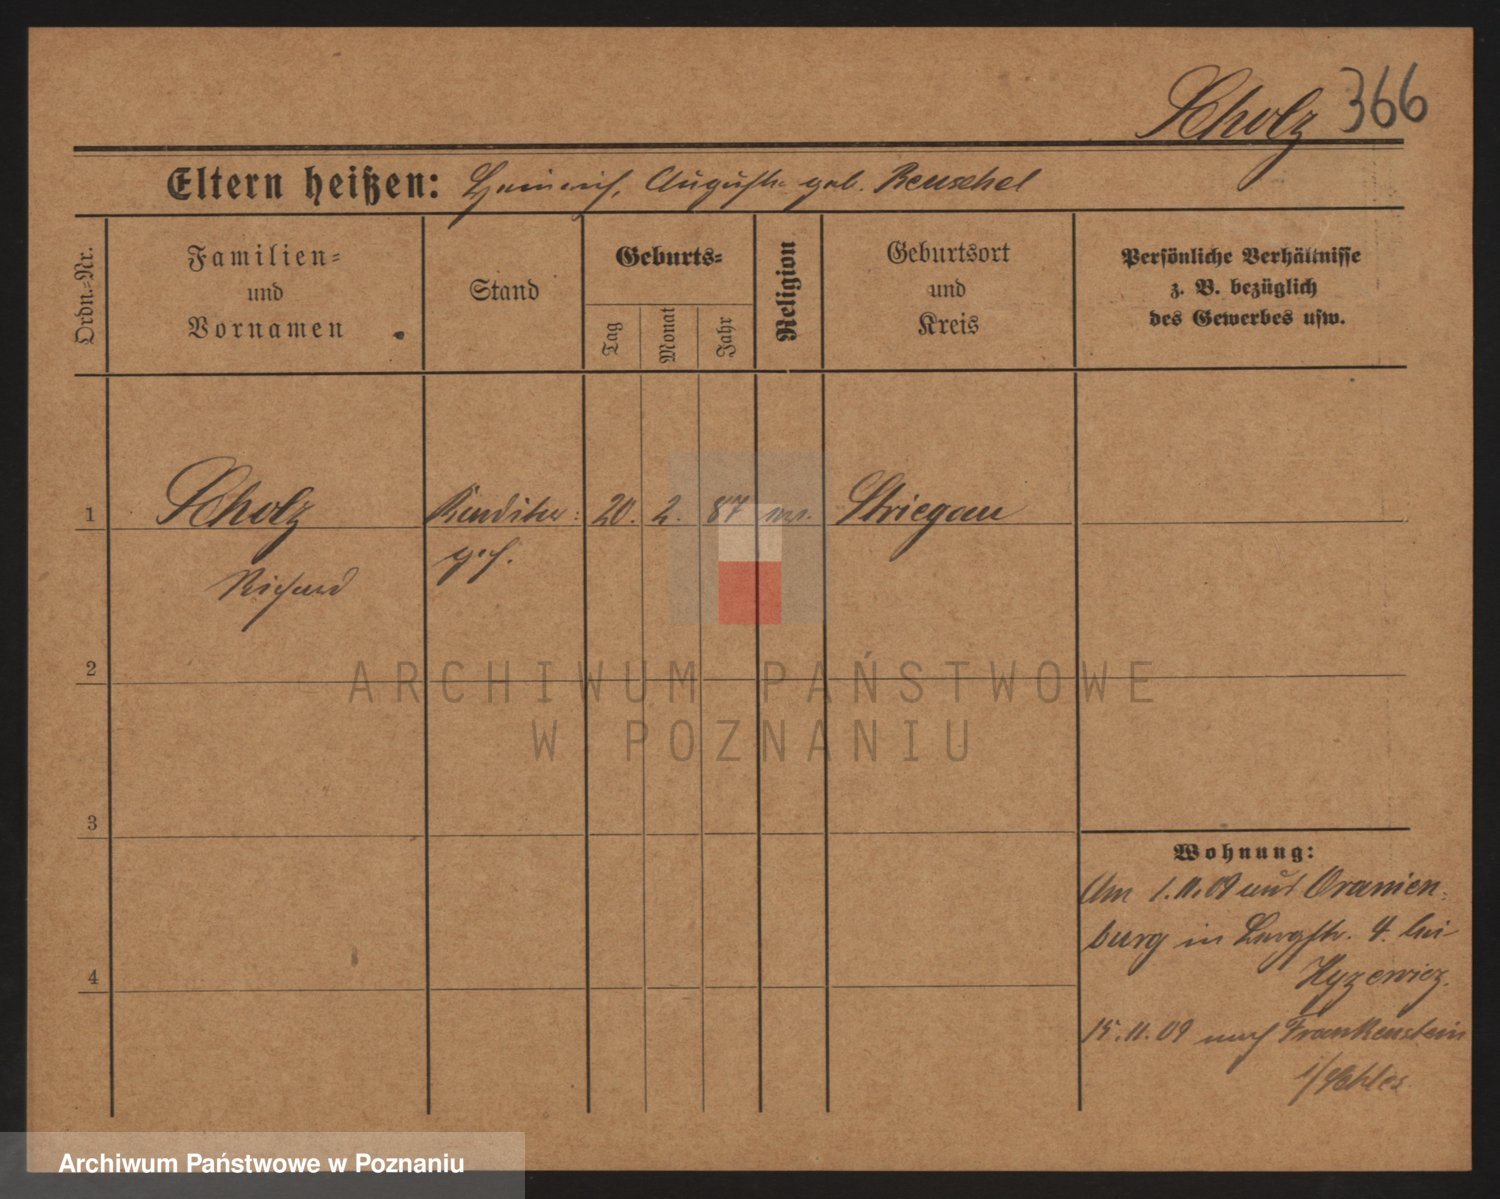 Scholz 366
Eltern heißen: Heinrich, Auguste geb. Reuschel
Ordn.-Nr.
Familien-
und
Vornamen
Stand
Geburts-
Tag
Monat
Jahr
Religion
Geburtsort
und
Kreis
Persönliche Verhältnisse
z. B. bezüglich
des Gewerbes usw.
1 Scholz Konditor- 20. 2. 87 Striegau
Richard
2
3
4
Wohnung:
Am 1.11.09 aus Oranien-
burg in 4. bei
Hyzewicz.
15.11.09 nach Frankenstein
i/Schles.
ARCHIWUM PAŃSTWOWE
W POZNANIU
Archiwum Państwowe w Poznaniu